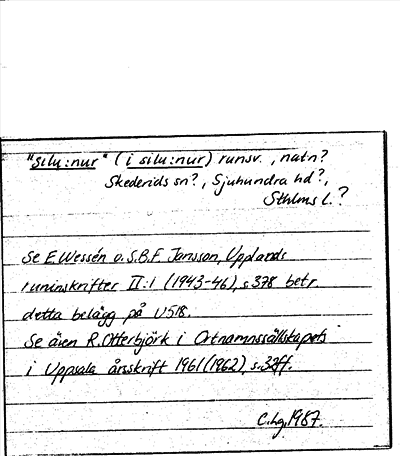 "silu:nur" (i silu:nur) runsv., natn?
Skederids sn?, Sjuhundra hd?,
Sthlms l.?
Se E. Wessén o. S.B.F. Jansson, Upplands
runinskrifter II:1 (1943-46), s. 378 betr.
detta belägg på U518.
Se även R. Otterbjörk i Ortnamnssällskapets
i Uppsala årsskrift 1961 (1962), s. 32ff.
1987.